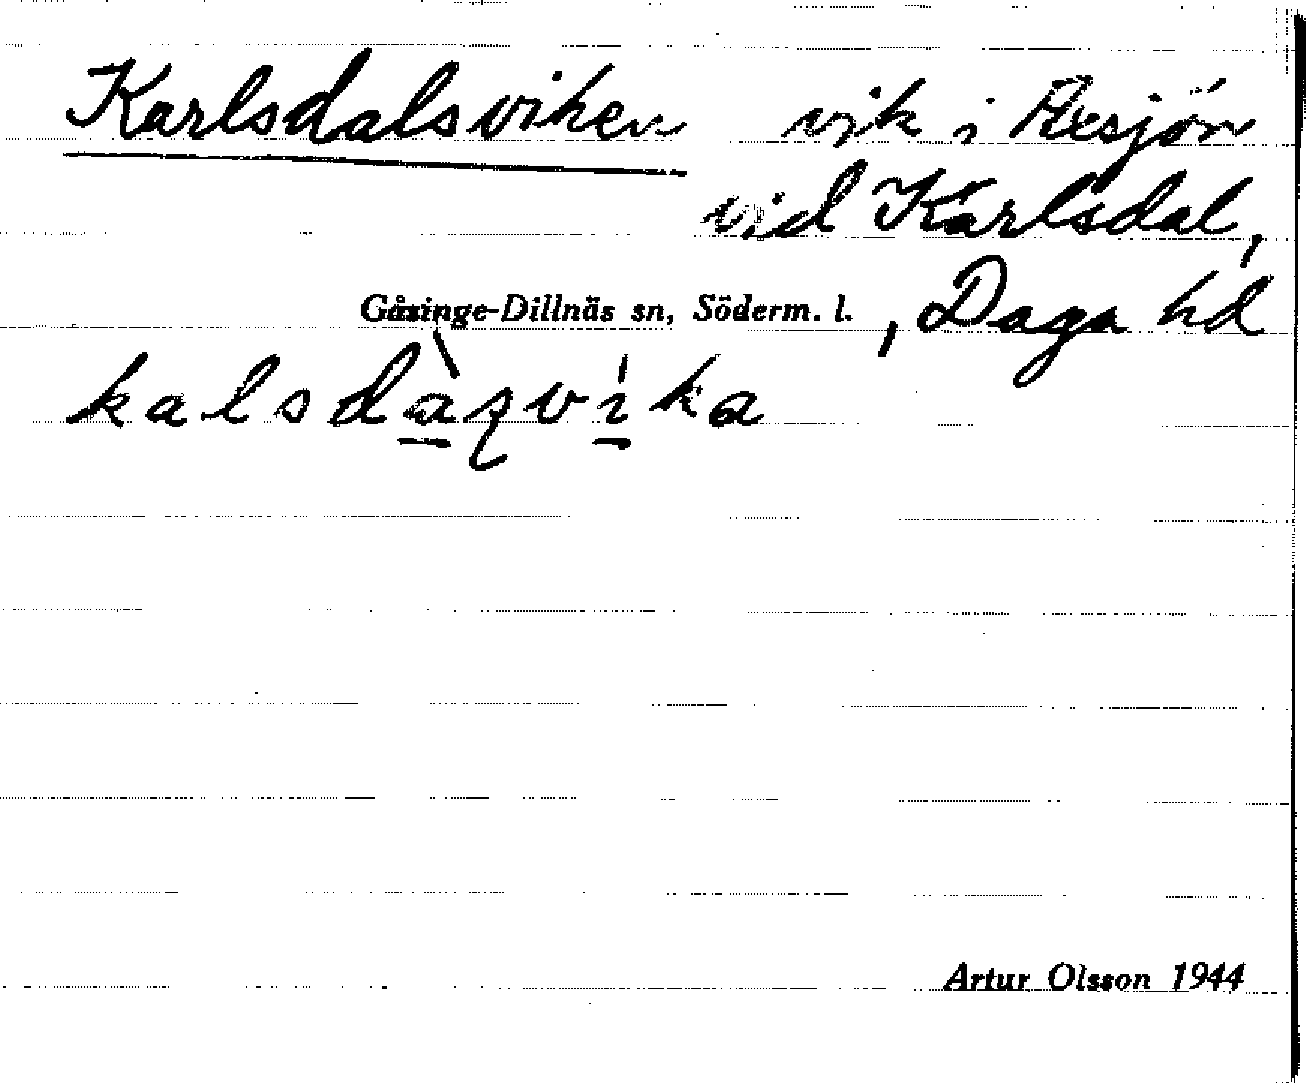 Karlsdalsviken vik i
vid Karlsdal,
Gåsinge-Dillnäs sn, Söderm. l., Daga hd
kalsdàzvíka
Artur Olsson 1944